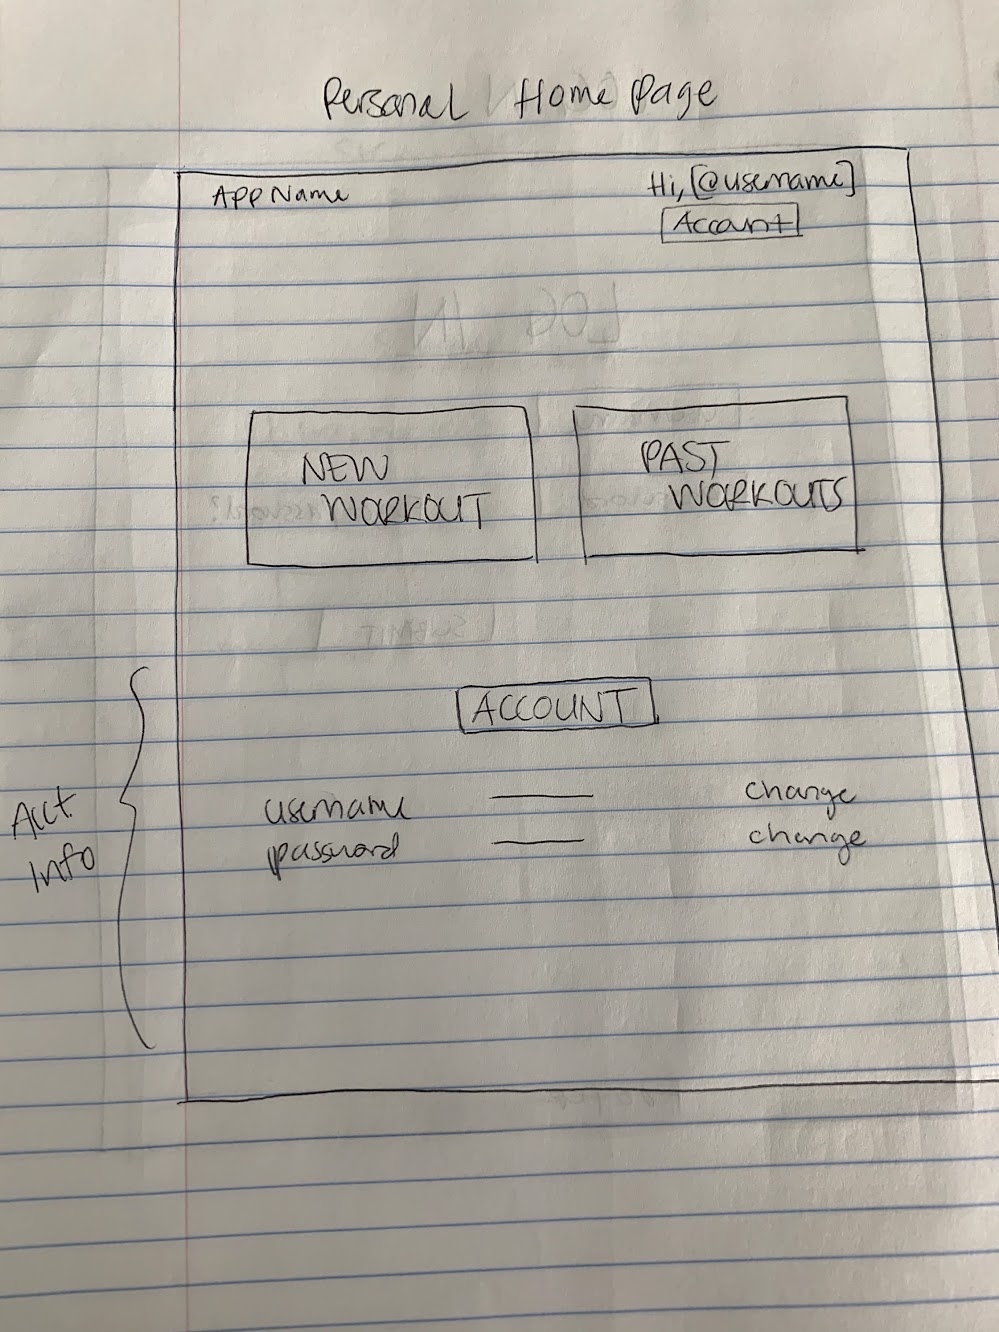 Personal Home Page
APP Name
Hi, [@username]
Account
NEW
WORKOUT
PAST
WORKOUTS
ACCOUNT
Acct.
Info
username change
password change
LOG IN
SUBMIT